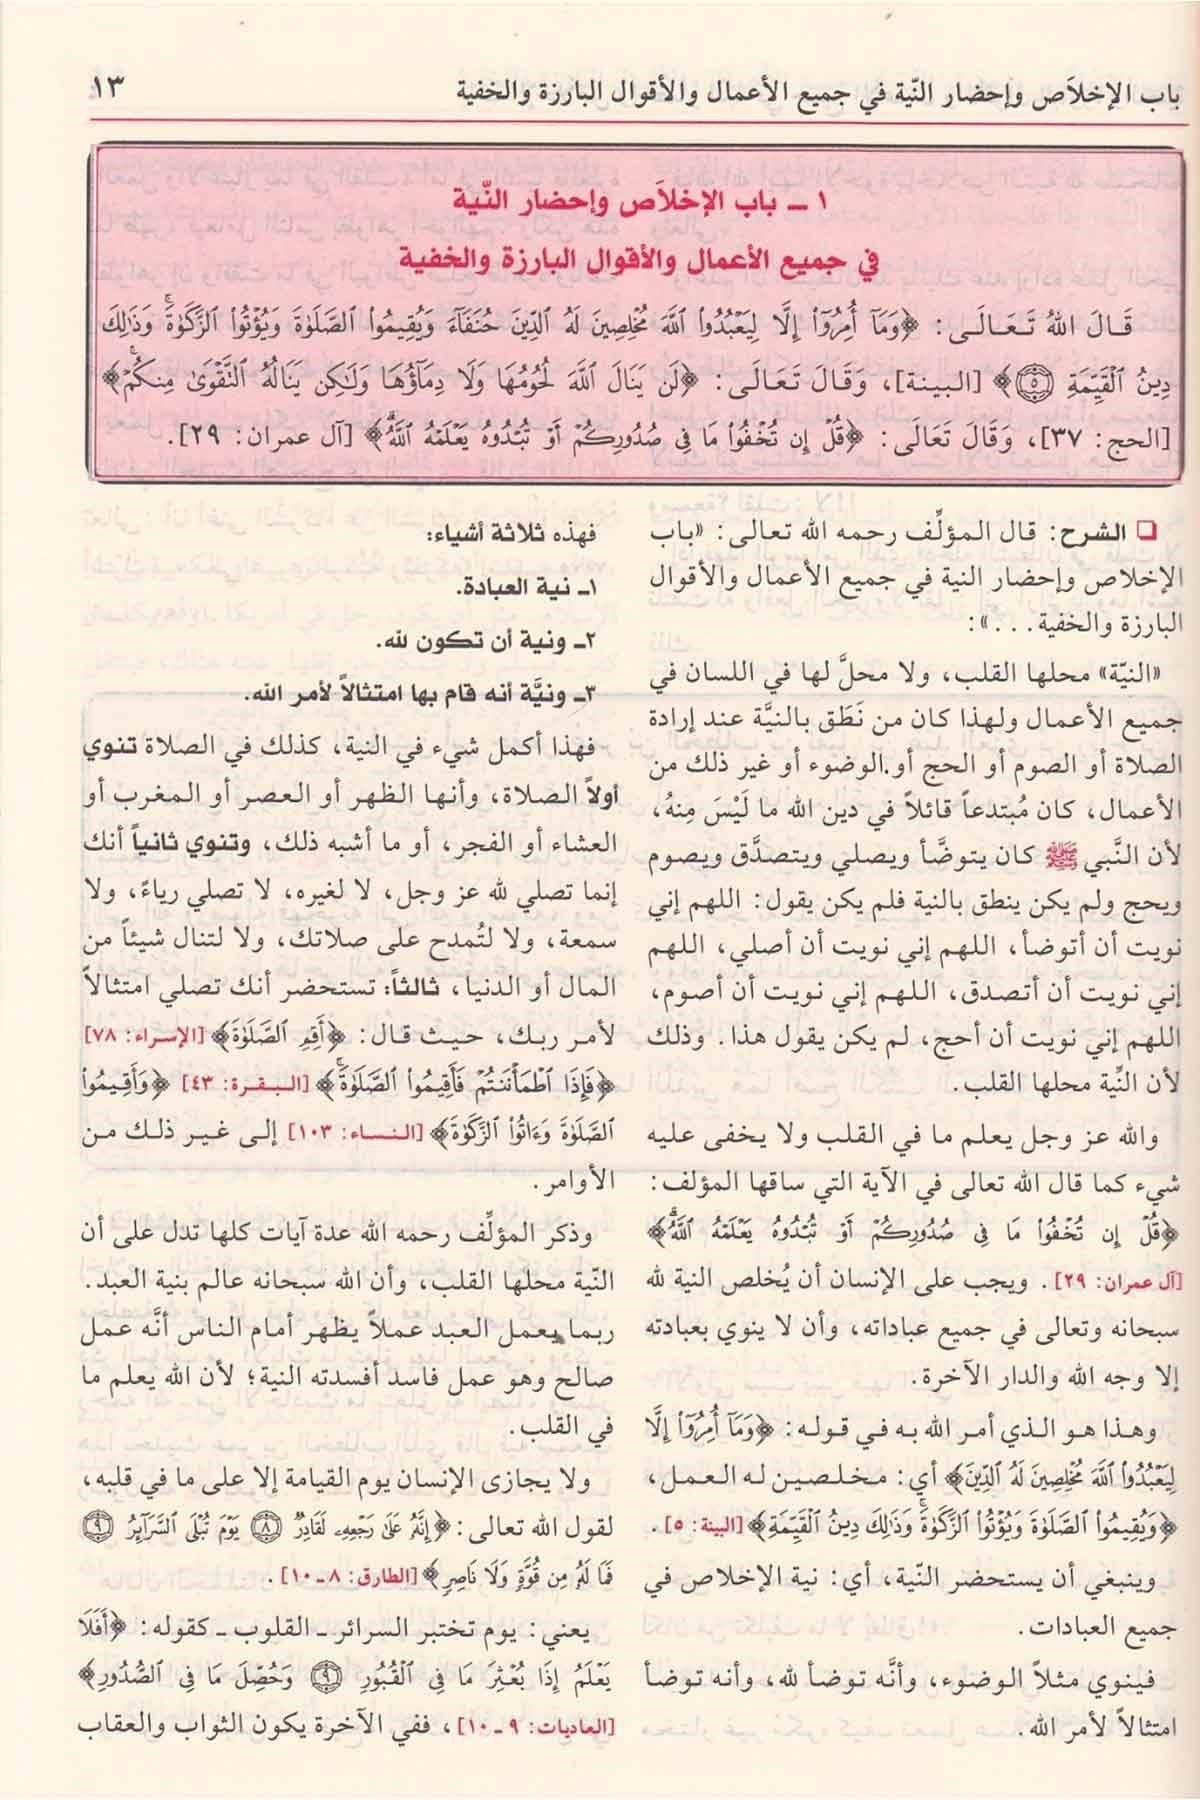 باب الإخلاَص وإحضار النّية في جميع الأعمال والأقوال البارزة والخفية ١٣
١ ــ باب الإخلاَص وإحضار النّية
في جميع الأعمال والأقوال البارزة والخفية
قَالَ اللهُ تَعَالَى: ﴿وَمَآ أُمِرُوٓا۟ إِلَّا لِيَعْبُدُوا۟ ٱللَّهَ مُخْلِصِينَ لَهُ ٱلدِّينَ حُنَفَآءَ وَيُقِيمُوا۟ ٱلصَّلَوٰةَ وَيُؤْتُوا۟ ٱلزَّكَوٰةَ ۚ وَذَٰلِكَ
دِينُ ٱلْقَيِّمَةِ ٥﴾ [البينة]، وَقَالَ تَعَالَى: ﴿لَن يَنَالَ ٱللَّهَ لُحُومُهَا وَلَا دِمَآؤُهَا وَلَٰكِن يَنَالُهُ ٱلتَّقْوَىٰ مِنكُمْ ۚ﴾
[الحج: ٣٧]، وَقَالَ تَعَالَى: ﴿قُلْ إِن تُخْفُوا۟ مَا فِى صُدُورِكُمْ أَوْ تُبْدُوهُ يَعْلَمْهُ ٱللَّهُ ۗ﴾ [آل عمران: ٢٩].
❑ الشرح: قال المؤلِّف رحمه الله تعالى: «باب
الإخلاص وإحضار النية في جميع الأعمال والأقوال
البارزة والخفية...»:
«النيّة» محلها القلب، ولا محلَّ لها في اللسان في
جميع الأعمال ولهذا كان من نَطَق بالنيَّة عند إرادة
الصلاة أو الصوم أو الحج أو الوضوء أو غير ذلك من
الأعمال، كان مُبتدعاً قائلاً في دين الله ما لَيْسَ مِنهُ،
لأن النَّبي ﷺ كان يتوضَّأ ويصلي ويتصدَّق ويصوم
ويحج ولم يكن ينطق بالنية فلم يكن يقول: اللهم إني
نويت أن أتوضأ، اللهم إني نويت أن أصلي، اللهم
إني نويت أن أتصدق، اللهم إني نويت أن أصوم،
اللهم إني نويت أن أحج، لم يكن يقول هذا. وذلك
لأن النِّية محلها القلب.
والله عز وجل يعلم ما في القلب ولا يخفى عليه
شيء كما قال الله تعالى في الآية التي ساقها المؤلف:
﴿قُلْ إِن تُخْفُوا۟ مَا فِى صُدُورِكُمْ أَوْ تُبْدُوهُ يَعْلَمْهُ ٱللَّهُ ۗ﴾
[آل عمران: ٢٩]. ويجب على الإنسان أن يُخلص النية لله
سبحانه وتعالى في جميع عباداته، وأن لا ينوي بعبادته
إلا وجه الله والدار الآخرة.
وهذا هو الذي أمر الله به في قوله: ﴿وَمَآ أُمِرُوٓا۟ إِلَّا
لِيَعْبُدُوا۟ ٱللَّهَ مُخْلِصِينَ لَهُ ٱلدِّينَ﴾ أي: مخلصين له العمل،
﴿وَيُقِيمُوا۟ ٱلصَّلَوٰةَ وَيُؤْتُوا۟ ٱلزَّكَوٰةَ ۚ وَذَٰلِكَ دِينُ ٱلْقَيِّمَةِ﴾ [البينة: ٥].
وينبغي أن يستحضر النّية، أي: نية الإخلاص في
جميع العبادات.
فينوي مثلاً الوضوء، وأنَّه توضأ لله، وأنه توضأ
امتثالاً لأمر الله.
فهذه ثلاثة أشياء:
١ـ نية العبادة.
٢ـ ونية أن تكون لله.
٣ـ ونيَّة أنه قام بها امتثالاً لأمر الله.
فهذا أكمل شيء في النية، كذلك في الصلاة تنوي
أولاً الصلاة، وأنها الظهر أو العصر أو المغرب أو
العشاء أو الفجر، أو ما أشبه ذلك، وتنوي ثانياً أنك
إنما تصلي لله عز وجل، لا لغيره، لا تصلي رياءً، ولا
سمعة، ولا لتُمدح على صلاتك، ولا لتنال شيئاً من
المال أو الدنيا، ثالثاً: تستحضر أنك تصلي امتثالاً
لأمر ربك، حيث قال: ﴿أَقِمِ ٱلصَّلَوٰةَ﴾ [الإسراء: ٧٨]
﴿فَإِذَا ٱطْمَأْنَنتُمْ فَأَقِيمُوا۟ ٱلصَّلَوٰةَ ۚ﴾ [البقرة: ٤٣] ﴿وَأَقِيمُوا۟
ٱلصَّلَوٰةَ وَءَاتُوا۟ ٱلزَّكَوٰةَ﴾ [النساء: ١٠٣] إلى غير ذلك من
الأوامر.
وذكر المؤلِّف رحمه الله عدة آيات كلها تدل على أن
النّية محلها القلب، وأن الله سبحانه عالم بنية العبد.
ربما يعمل العبد عملاً يظهر أمام الناس أنَّه عمل
صالح وهو عمل فاسد أفسدته النية؛ لأن الله يعلم ما
في القلب.
ولا يجازى الإنسان يوم القيامة إلا على ما في قلبه،
لقول الله تعالى: ﴿إِنَّهُۥ عَلَىٰ رَجْعِهِۦ لَقَادِرٌ ٨ يَوْمَ تُبْلَى ٱلسَّرَآئِرُ ٩
فَمَا لَهُۥ مِن قُوَّةٍ وَلَا نَاصِرٍ﴾ [الطارق: ٨ ـ ١٠].
يعني: يوم تختبر السرائر ـ القلوب ـ كقوله: ﴿أَفَلَا
يَعْلَمُ إِذَا بُعْثِرَ مَا فِى ٱلْقُبُورِ ٩ وَحُصِّلَ مَا فِى ٱلصُّدُورِ﴾
[العاديات: ٩ ـ ١٠]، ففي الآخرة يكون الثواب والعقاب